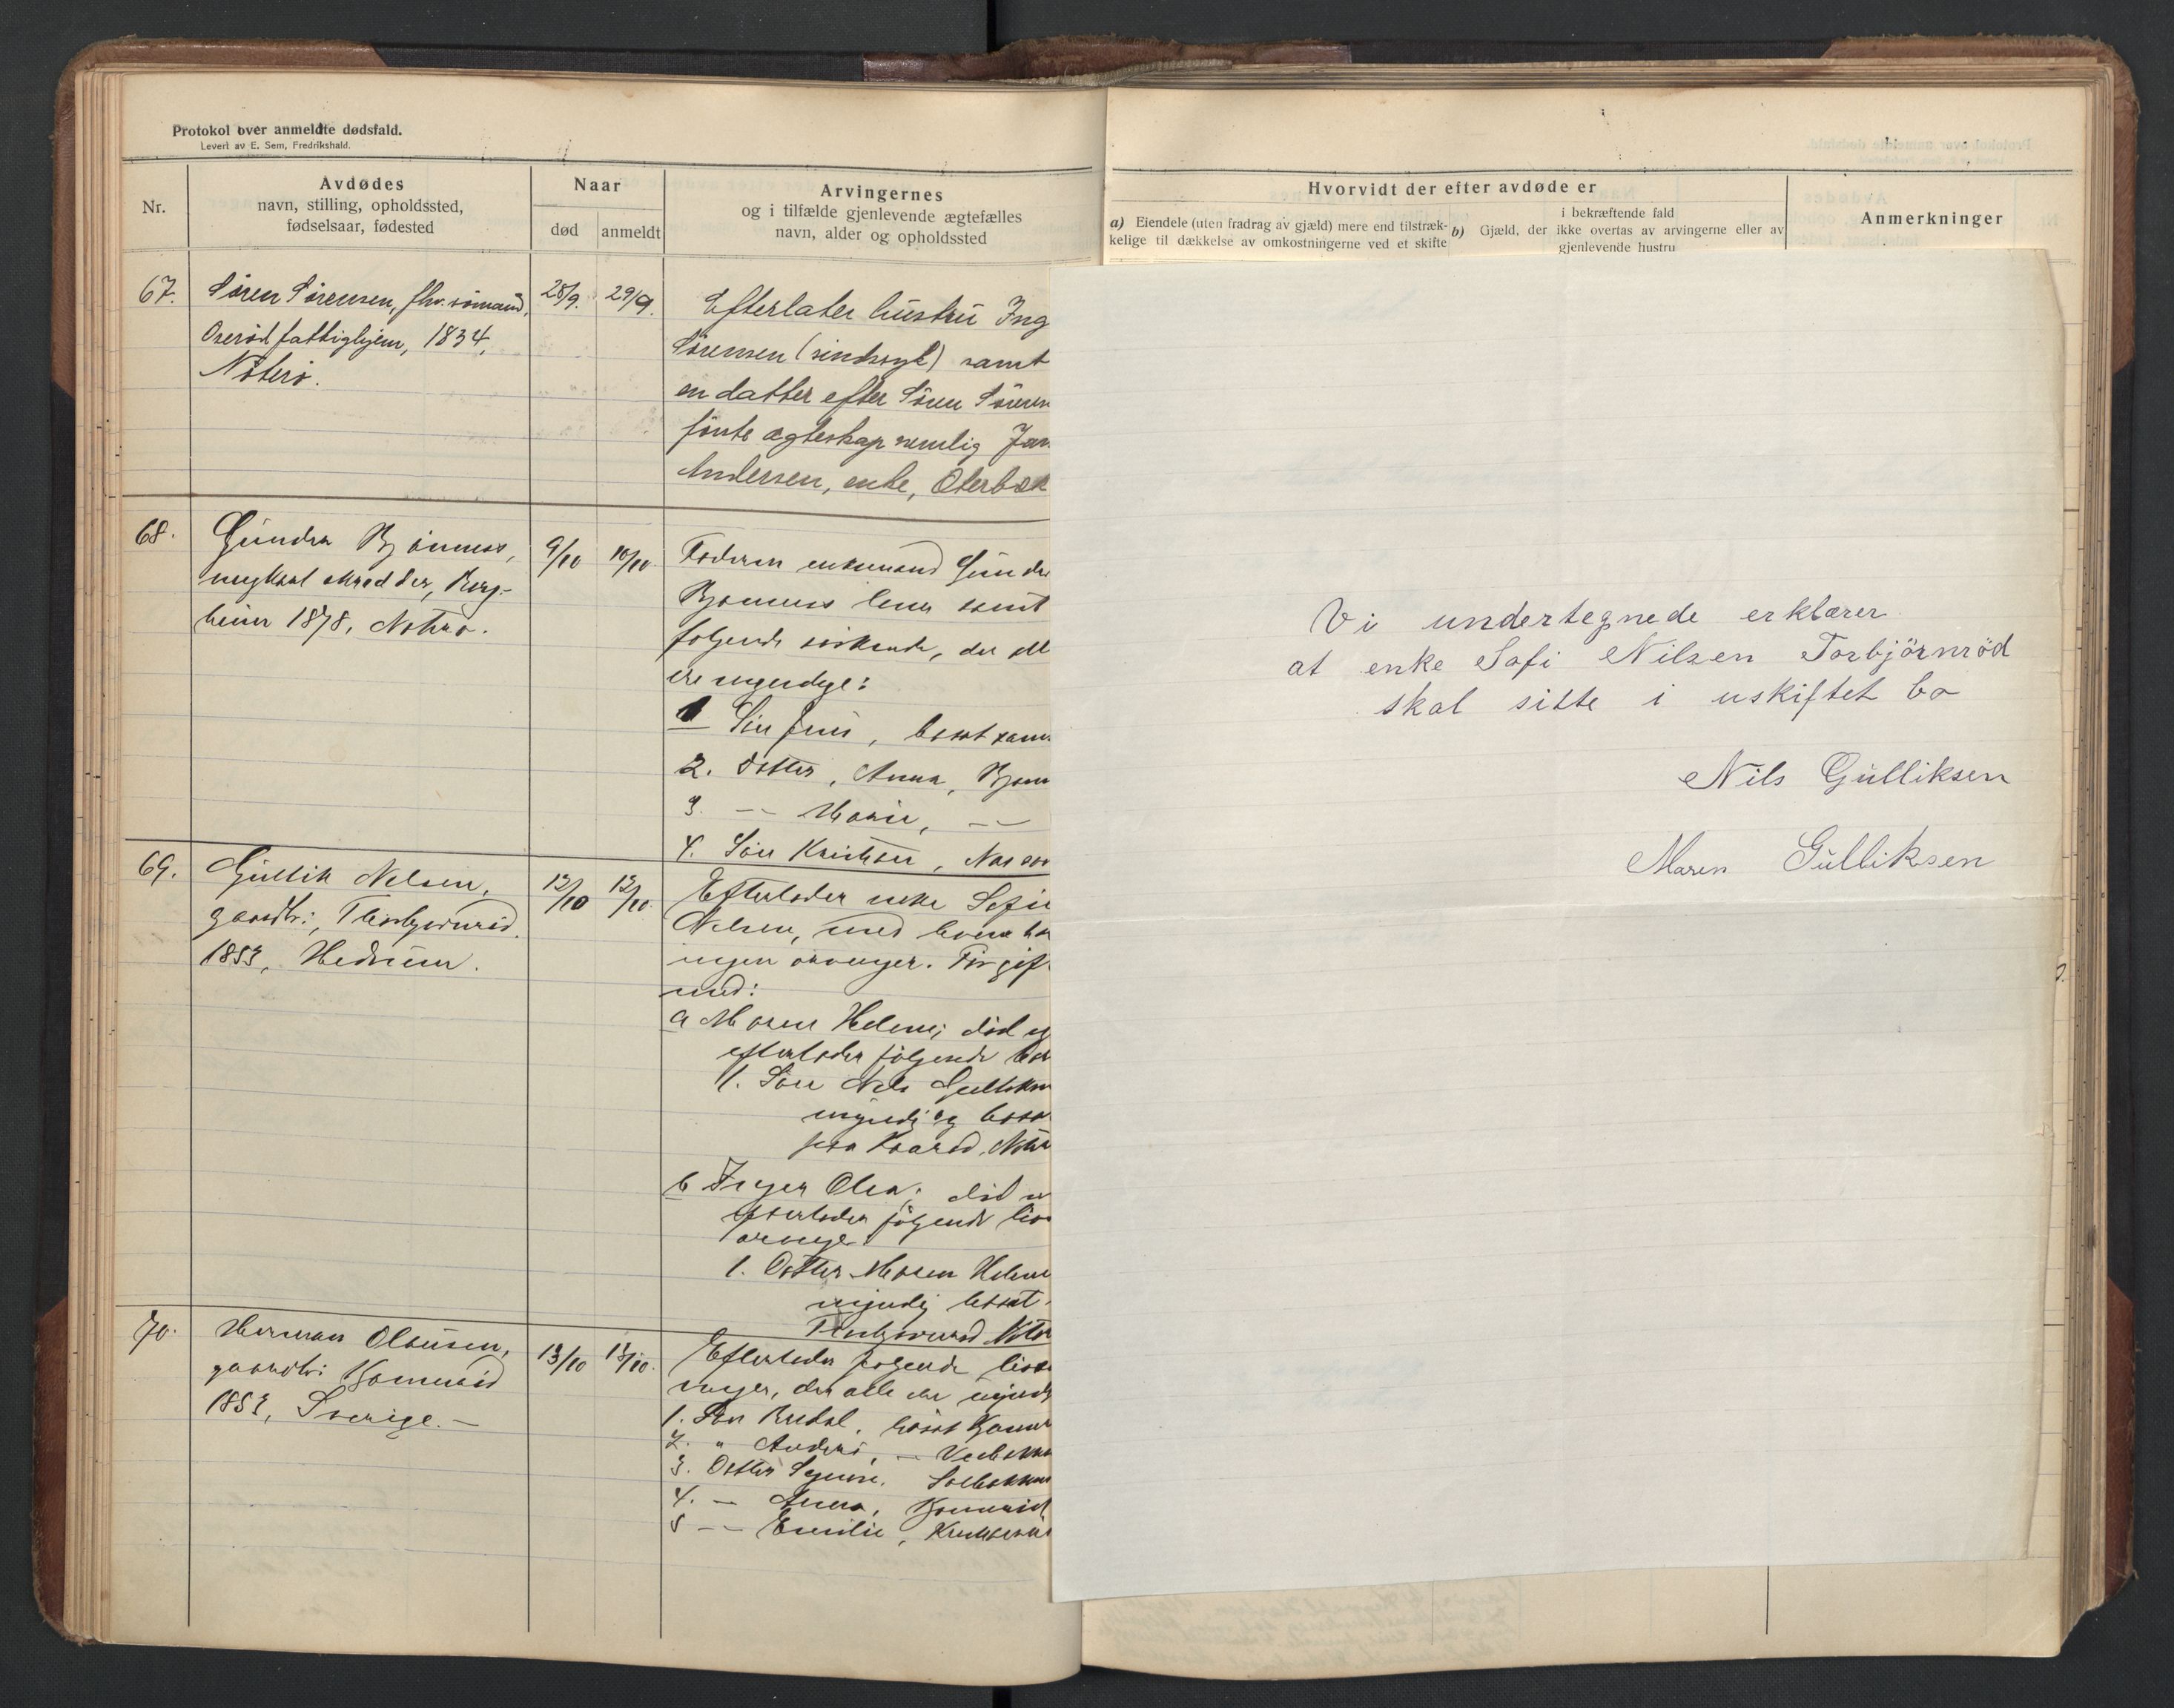 Protokol over anmeldte dødsfald.
Levert av E. Sem, Fredrikshald.
Nr.
Avdødes
navn, stilling, opholdssted,
fødselsaar, fødested
Naar
død
anmeldt
Arvingernes
og i tilfælde gjenlevende ægtefælles
navn, alder og opholdssted
67.
Søren Sørensen, fhv. sømand,
Oserød fattighjem, 1834,
Nøterø.
28/9.
29/9.
Efterlater hustru Ing
Sørensen (sindssyk) samt
en datter efter Søren Sørens
første ægteskap nemlig
Andersen, enke, Oterbæk
68.
Bjønness,
ungkarl skrædder, Berg-
heim 1878, Nøterø.
9/10
10/10.
Faderen enkemand
Bjønness lever samt
følgende søskende, der all
ere myndige:
1 Søn Jens, bosat
2. Datter, Anna,
3. — Marie, —
4. Søn Kristian,
69.
Gullik Nilsen,
gaardbr., Thorbjørnrød
1853, Hedrum.
12/10
12/10.
Efterlader enke Sofie
Nilsen, med hvem han
ingen arvinger. Før gif
med:
a Maren Helene; død og
efterlader følgende
1. Søn Nils Gulliksen
myndig og bosa
paa Nøter
b Inger Olea; død
efterlader følgende livs
arvinge
1. Datter Maren Helene
myndig bosat
Thorbjørnrød Nøter
70.
Herman Olausen,
gaardbr.
1853, Sverige. —
13/10
13/10.
Efterlader følgende livsa
vinger, der alle ere myndig
1. Søn bosat
2. " Anders, —
3. Datter Solbakken
4. — Anna,
5 — Emilie,
Hvorvidt der efter avdøde er
a) Eiendele (uten fradrag av gjæld) mere end tilstræk-
kelige til dækkelse av omkostningerne ved et skifte
i bekræftende fald
b) Gjæld, der ikke overtas av arvingerne eller av
gjenlevende hustru
Anmerkninger
Vi undertegnede erklærer
at enke Sofi Nilsen Torbjörnröd
skal sitte i uskiftet bo
Nils Gulliksen
Maren Gulliksen